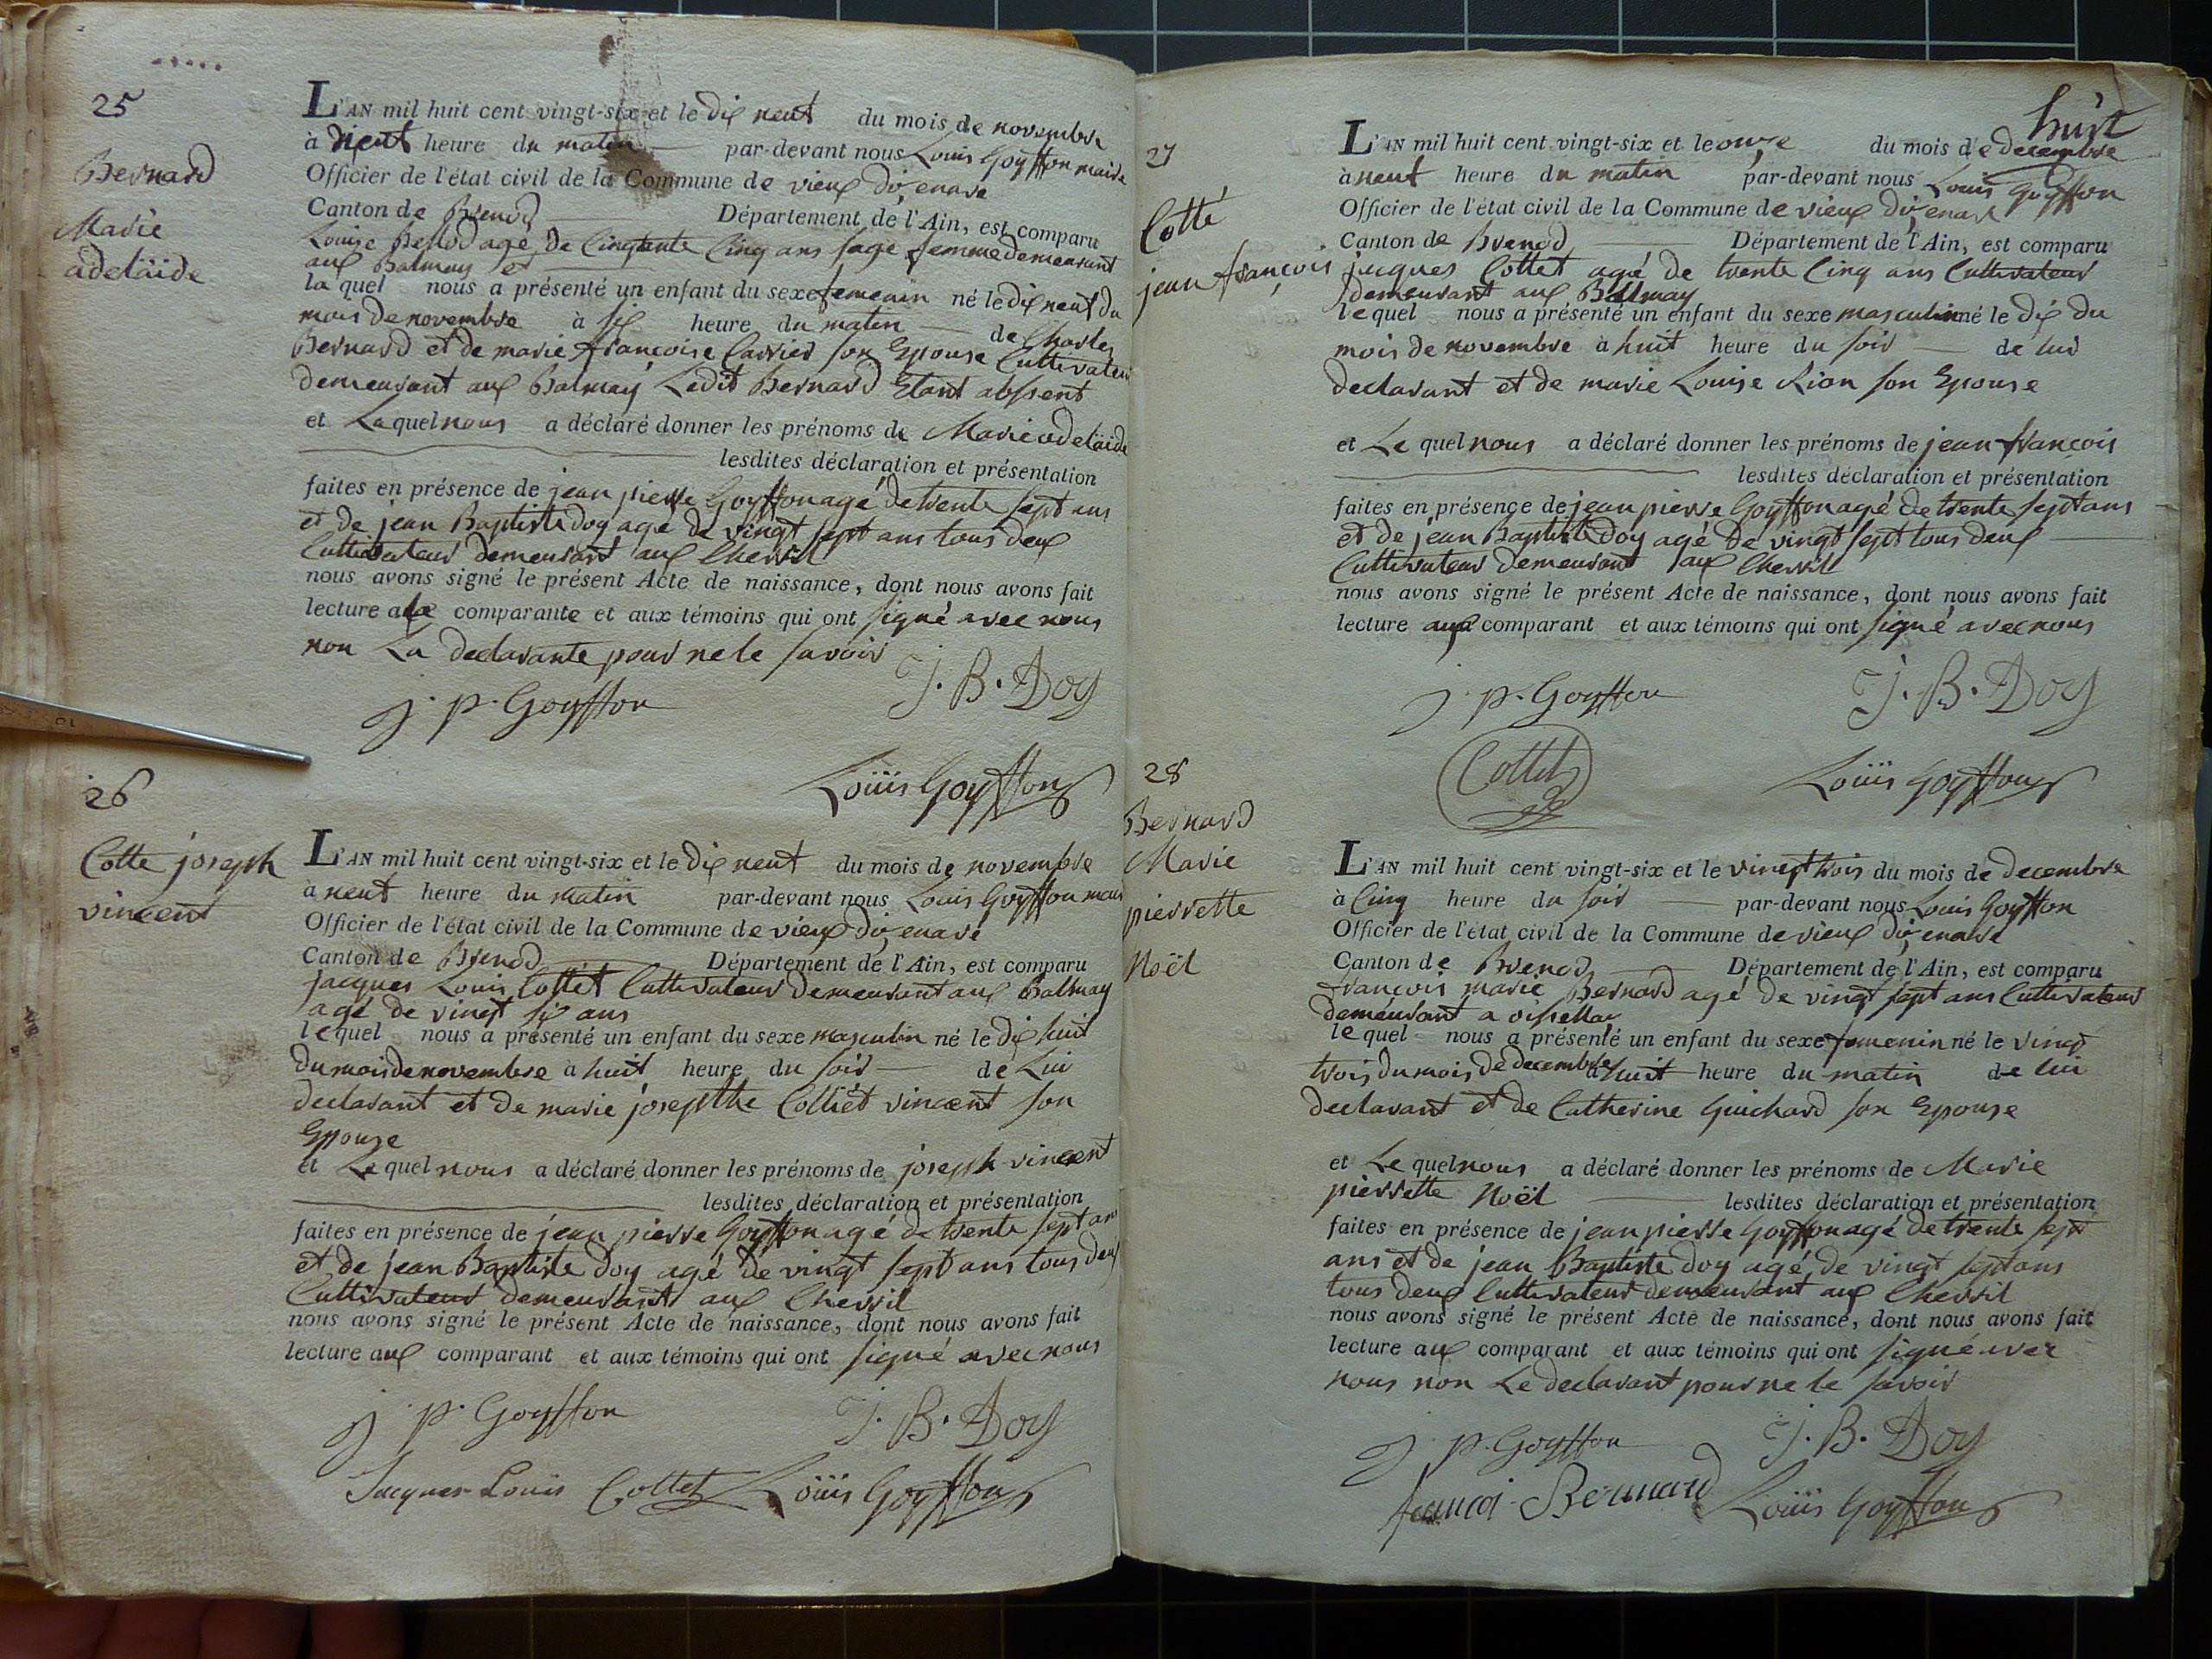 25
Bernard
Marie
adelaïde
L'AN mil huit cent vingt-six et le dix neuf du mois de novembre
à neuf heure du matin par-devant nous Louis Goyffon maire
Officier de l'état civil de la Commune de vieux d'izenave
Canton de Brenod Département de l'Ain, est comparu
Louise Bellod agé de Cinqtante Cinq ans sage femme demeurant
aux Balmay et
la quel nous a présenté un enfant du sexe femenin né le dix neuf du
mois de novembre à six heure du matin de Charles
Bernard et de marie françoise Carrier son Epouse Cultivateur
demeurant aux Balmay Ledit Bernard Etant absent
et Laquel nous a déclaré donner les prénoms de Marie adelaïde
lesdites déclaration et présentation
faites en présence de jean pierre Goyffon agé de trente sept ans
et de jean Baptiste doy agé de vingt sept ans tous deux
Cultivateur demeurant aux Chevril
nous avons signé le présent Acte de naissance, dont nous avons fait
lecture a la comparante et aux témoins qui ont signé avec nous
non La declarante pour ne le savoir
J. P. Goyffon J. B. Doy
Louis Goyffon
26
Cotte joseph
vincent
L'AN mil huit cent vingt-six et le dix neuf du mois de novembre
à neuf heure du matin par-devant nous Louis Goyffon
Officier de l'état civil de la Commune de vieux d'izenave
Canton de Brenod Département de l'Ain, est comparu
jacques Louis Cottet Cultivateur demeurant aux Balmay
agé de vingt six ans
lequel nous a présenté un enfant du sexe masculin né le dix huit
du mois de novembre à huit heure du soir de Lui
declarant et de marie josepthe vincent son
Epouse
et Le quel nous a déclaré donner les prénoms de joseph vincent
lesdites déclaration et présentation
faites en présence de jean pierre Goyffon agé de trente sept ans
et de jean Baptiste doy agé de vingt sept ans tous deux
Cultivateur demeurant aux Chevril
nous avons signé le présent Acte de naissance, dont nous avons fait
lecture aux comparant et aux témoins qui ont signé avec nous
J. P. Goyffon J. B. Doy
Jacques Louis Cottet Louis Goyffon
huit
27
Cotté
jean françois
L'AN mil huit cent vingt-six et le onze du mois de decembre
à neuf heure du matin par-devant nous Louis Goyffon
Officier de l'état civil de la Commune de vieux d'izenave
Canton de Brenod Département de l'Ain, est comparu
jacques Cottet agé de trente Cinq ans Cultivateur
demeurant aux Balmay
lequel nous a présenté un enfant du sexe masculin né le dix du
mois de novembre à huit heure du soir de lui
declarant et de marie Louise Lion son Epouse
et Le quel nous a déclaré donner les prénoms de jean françois
lesdites déclaration et présentation
faites en présence de jean pierre Goyffon agé de trente sept ans
et de jean Baptiste doy agé de vingt sept tous deux
Cultivateur demeurant aux Chevril
nous avons signé le présent Acte de naissance, dont nous avons fait
lecture aux comparant et aux témoins qui ont signé avec nous
J. P. Goyffon J. B. Doy
Cottet Louis Goyffon
28
Bernard
Marie
pierrette
Noël
L'AN mil huit cent vingt-six et le vingt trois du mois de decembre
à Cinq heure du soir par-devant nous Louis Goyffon
Officier de l'état civil de la Commune de vieux d'izenave
Canton de Brenod Département de l'Ain, est comparu
françois marie Bernard agé de vingt sept ans Cultivateur
demeurant a
lequel nous a présenté un enfant du sexe femenin né le vingt
trois du mois de decembre à huit heure du matin de lui
declarant et de Catherine Guichard son Epouse
et Le quel nous a déclaré donner les prénoms de Marie
pierrette Noël lesdites déclaration et présentation
faites en présence de jean pierre Goyffon agé de trente sept
ans et de jean Baptiste doy agé de vingt sept ans
tous deux Cultivateur demeurant aux Chevril
nous avons signé le présent Acte de naissance, dont nous avons fait
lecture aux comparant et aux témoins qui ont signé avec
nous non Le declarant pour ne le savoir
J. P. Goyffon J. B. Doy
françoi Bernard Louis Goyffon